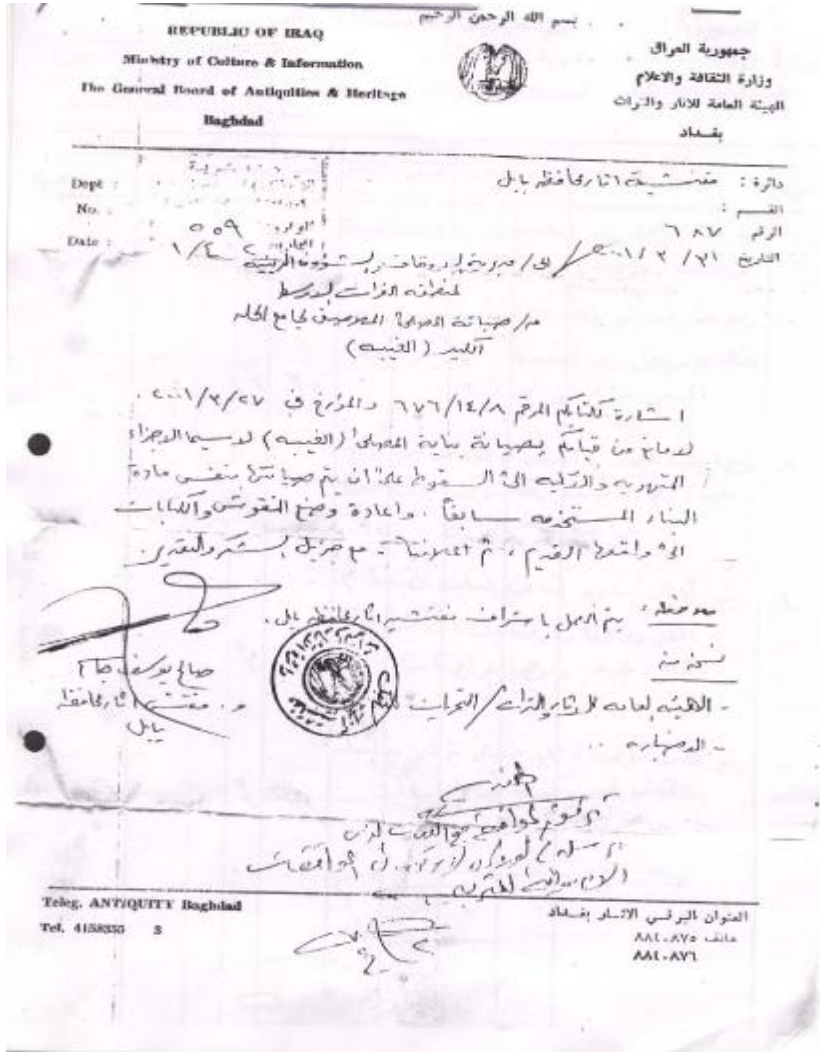 بسم الله الرحمن الرحيم
REPUBLIC OF IRAQ
Ministry of Culture & Information
The General Board of Antiquities & Heritage
Baghdad
جمهورية العراق
وزارة الثقافة والاعلام
الهيئة العامة للاثار والتراث
بغداد
Dept :
No. :
Date :
دائرة : مفتشية اثار محافظة بابل
القسم :
الرقم ٦٨٧
التاريخ ٣١ / ٣ / ٢٠٠١
الوارد ٥٥٩
الى / مديرية الاوقاف والشؤون الدينية
لمنطقة الفرات الاوسط
م/ صيانة المصلى الصيفي لجامع الحله
الكبير (الغيبه)
اشارة لكتابكم المرقم ٦٧٦/١٤/٨ والمؤرخ في ٢٠٠١/٣/٢٧ .
لا مانع من قيامكم بصيانة بناية المصلى (الغيبه) لاسيما الاجزاء
المتهريه والآيله الى السقوط على ان يتم صيانتها بنفس مادة
البناء المستخدمه سابقاً . واعادة وضع النقوش والكتابات
الى واقعها القديم ، ثم اعلامنا - مع جزيل الشكر والتقدير .
ملاحظه : يتم العمل باشراف مفتشية اثار محافظة بابل .
نسخة منه
- الهيئه العامه للاثار والتراث /
- الاضباره ..
صالح يوسف
م . مفتش اثار محافظة
بابل
Teleg. ANTIQUITY Baghdad
Tel. 4158355 3
العنوان البرقي الاثار بغداد
هاتف ٨٨٤٠٨٧٥
٨٨٤٠٨٧٦